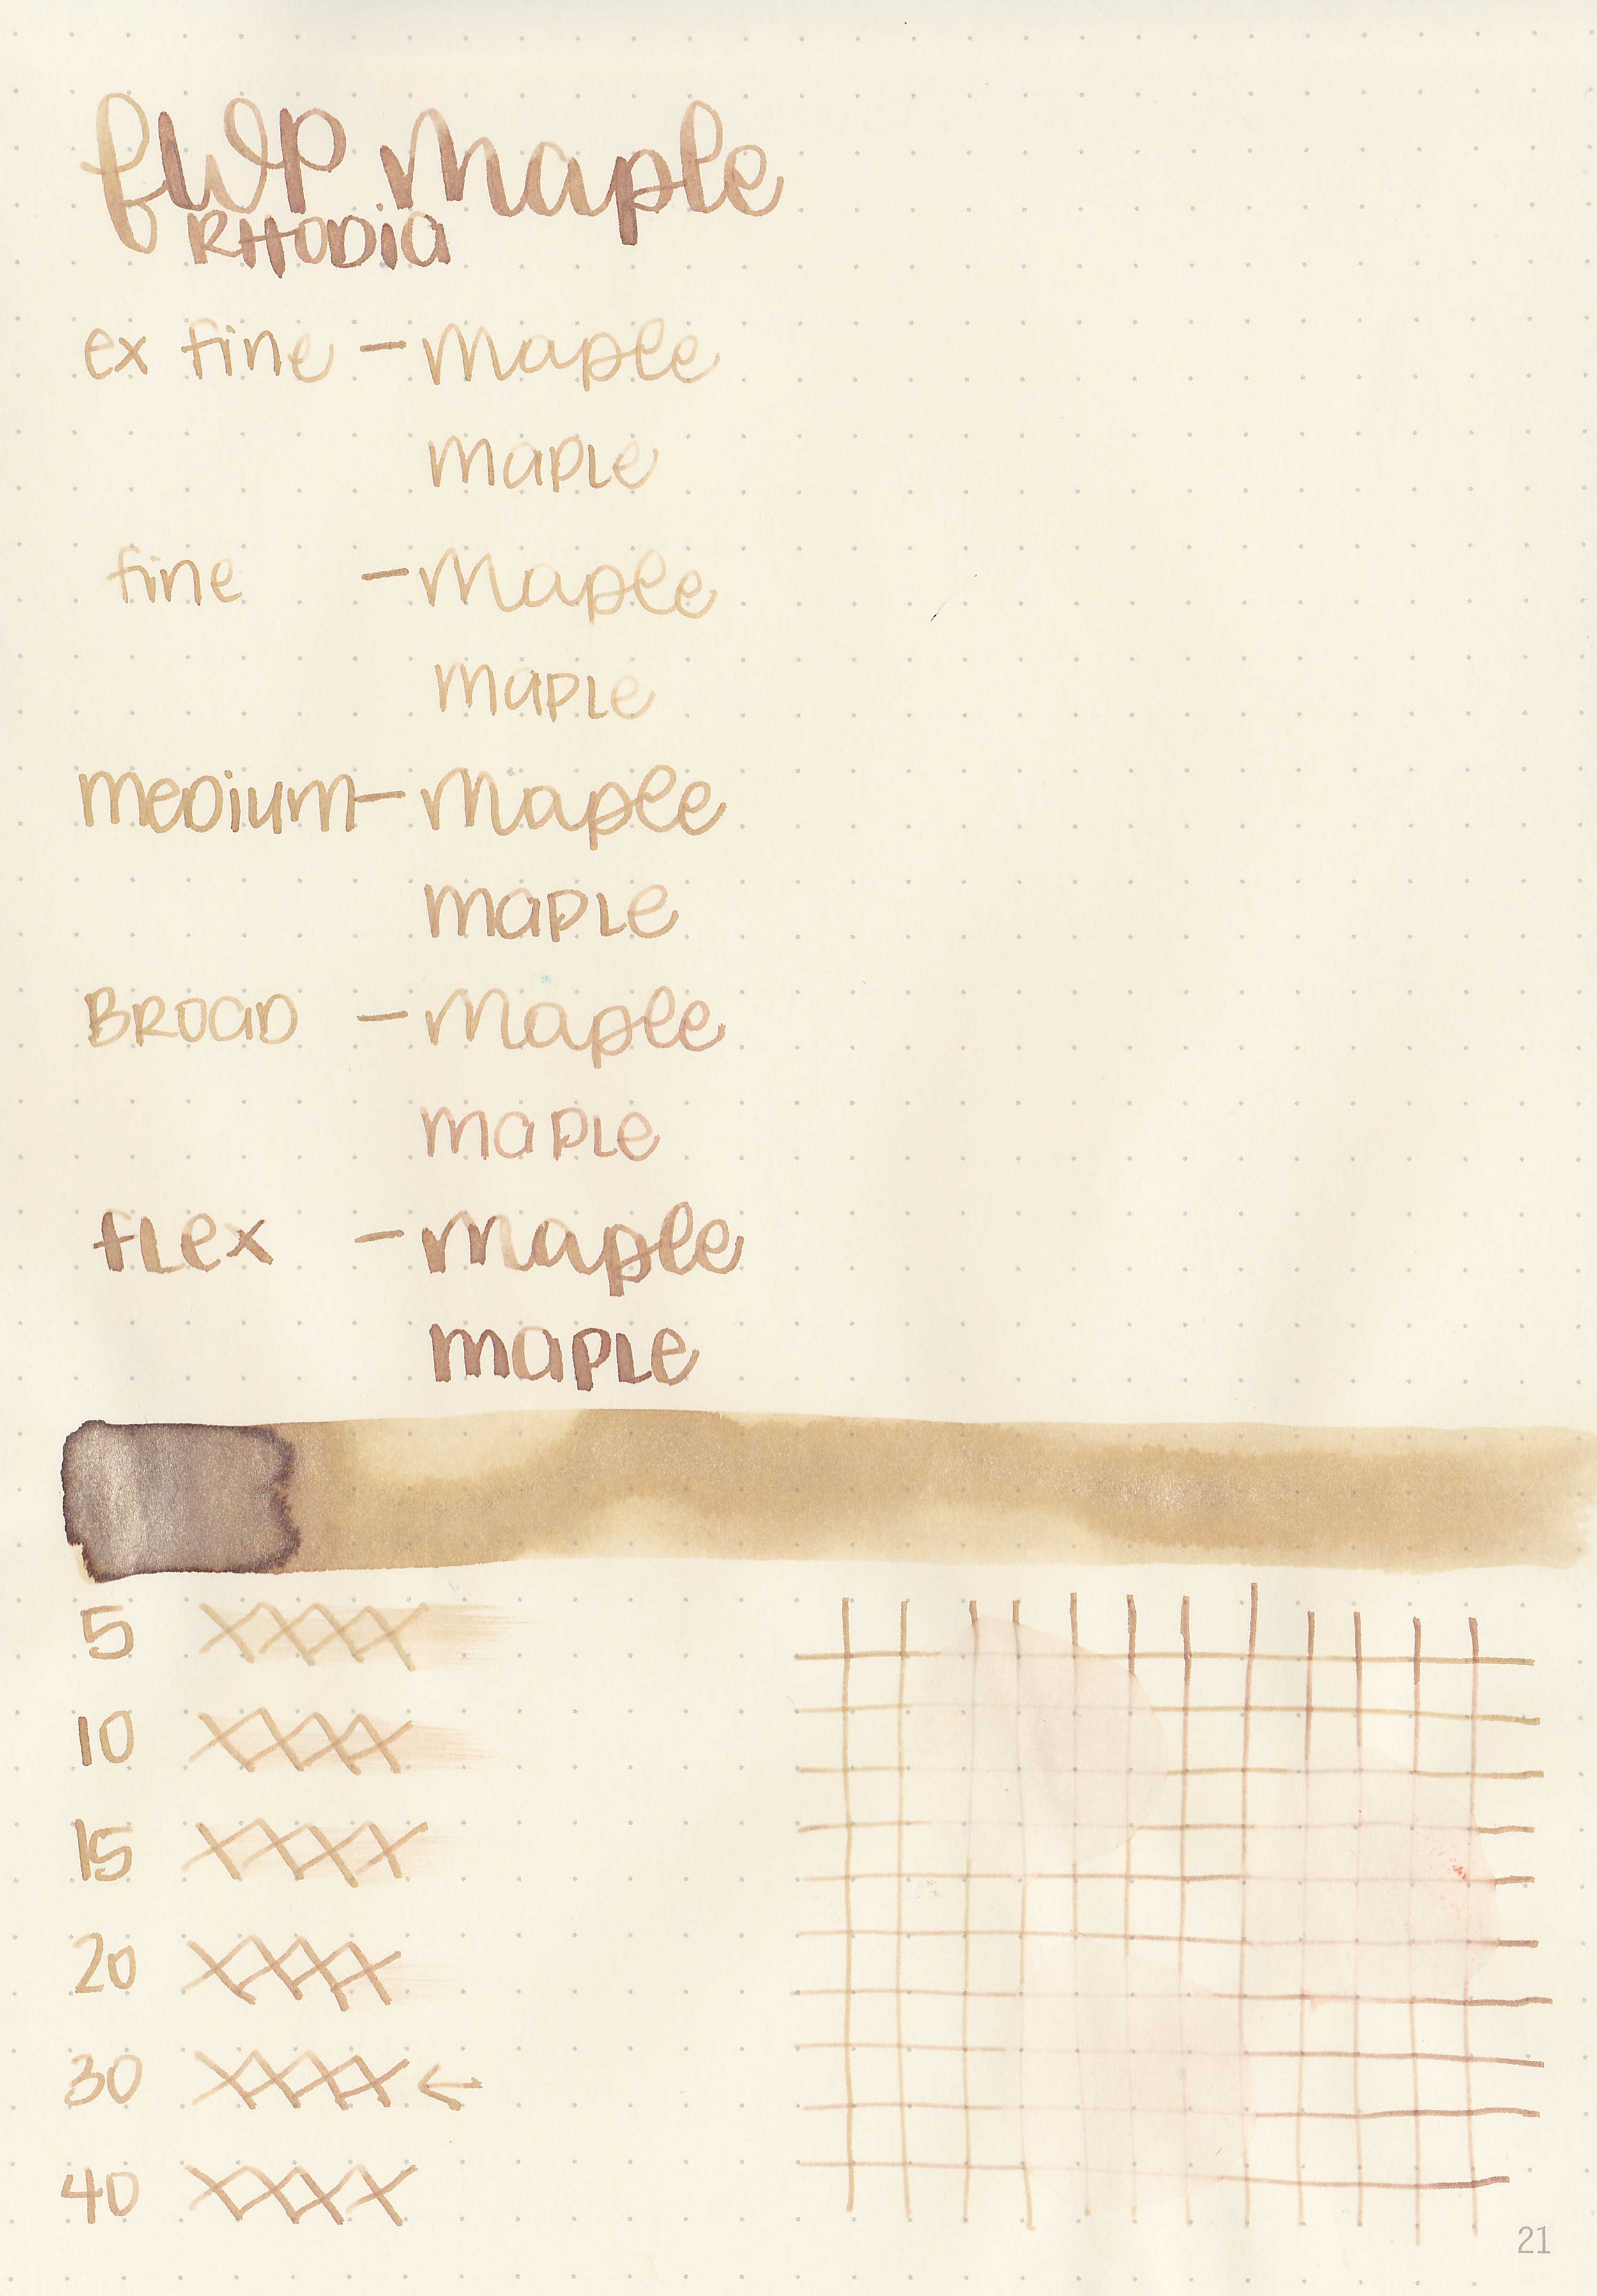 fWP Maple
RHODIA
ex fine - Maple
maple
fine - Maple
maple
medium - Maple
maple
BROAD - Maple
maple
flex - Maple
maple
5 XXXX
10 XXXX
15 XXXX
20 XXXX
30 XXXX ←
40 XXXX
21